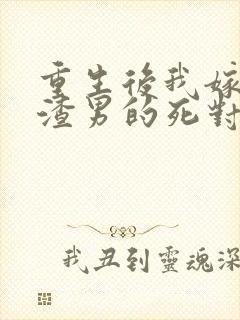 重生後我嫁
渣男的死對
我丑到靈魂深